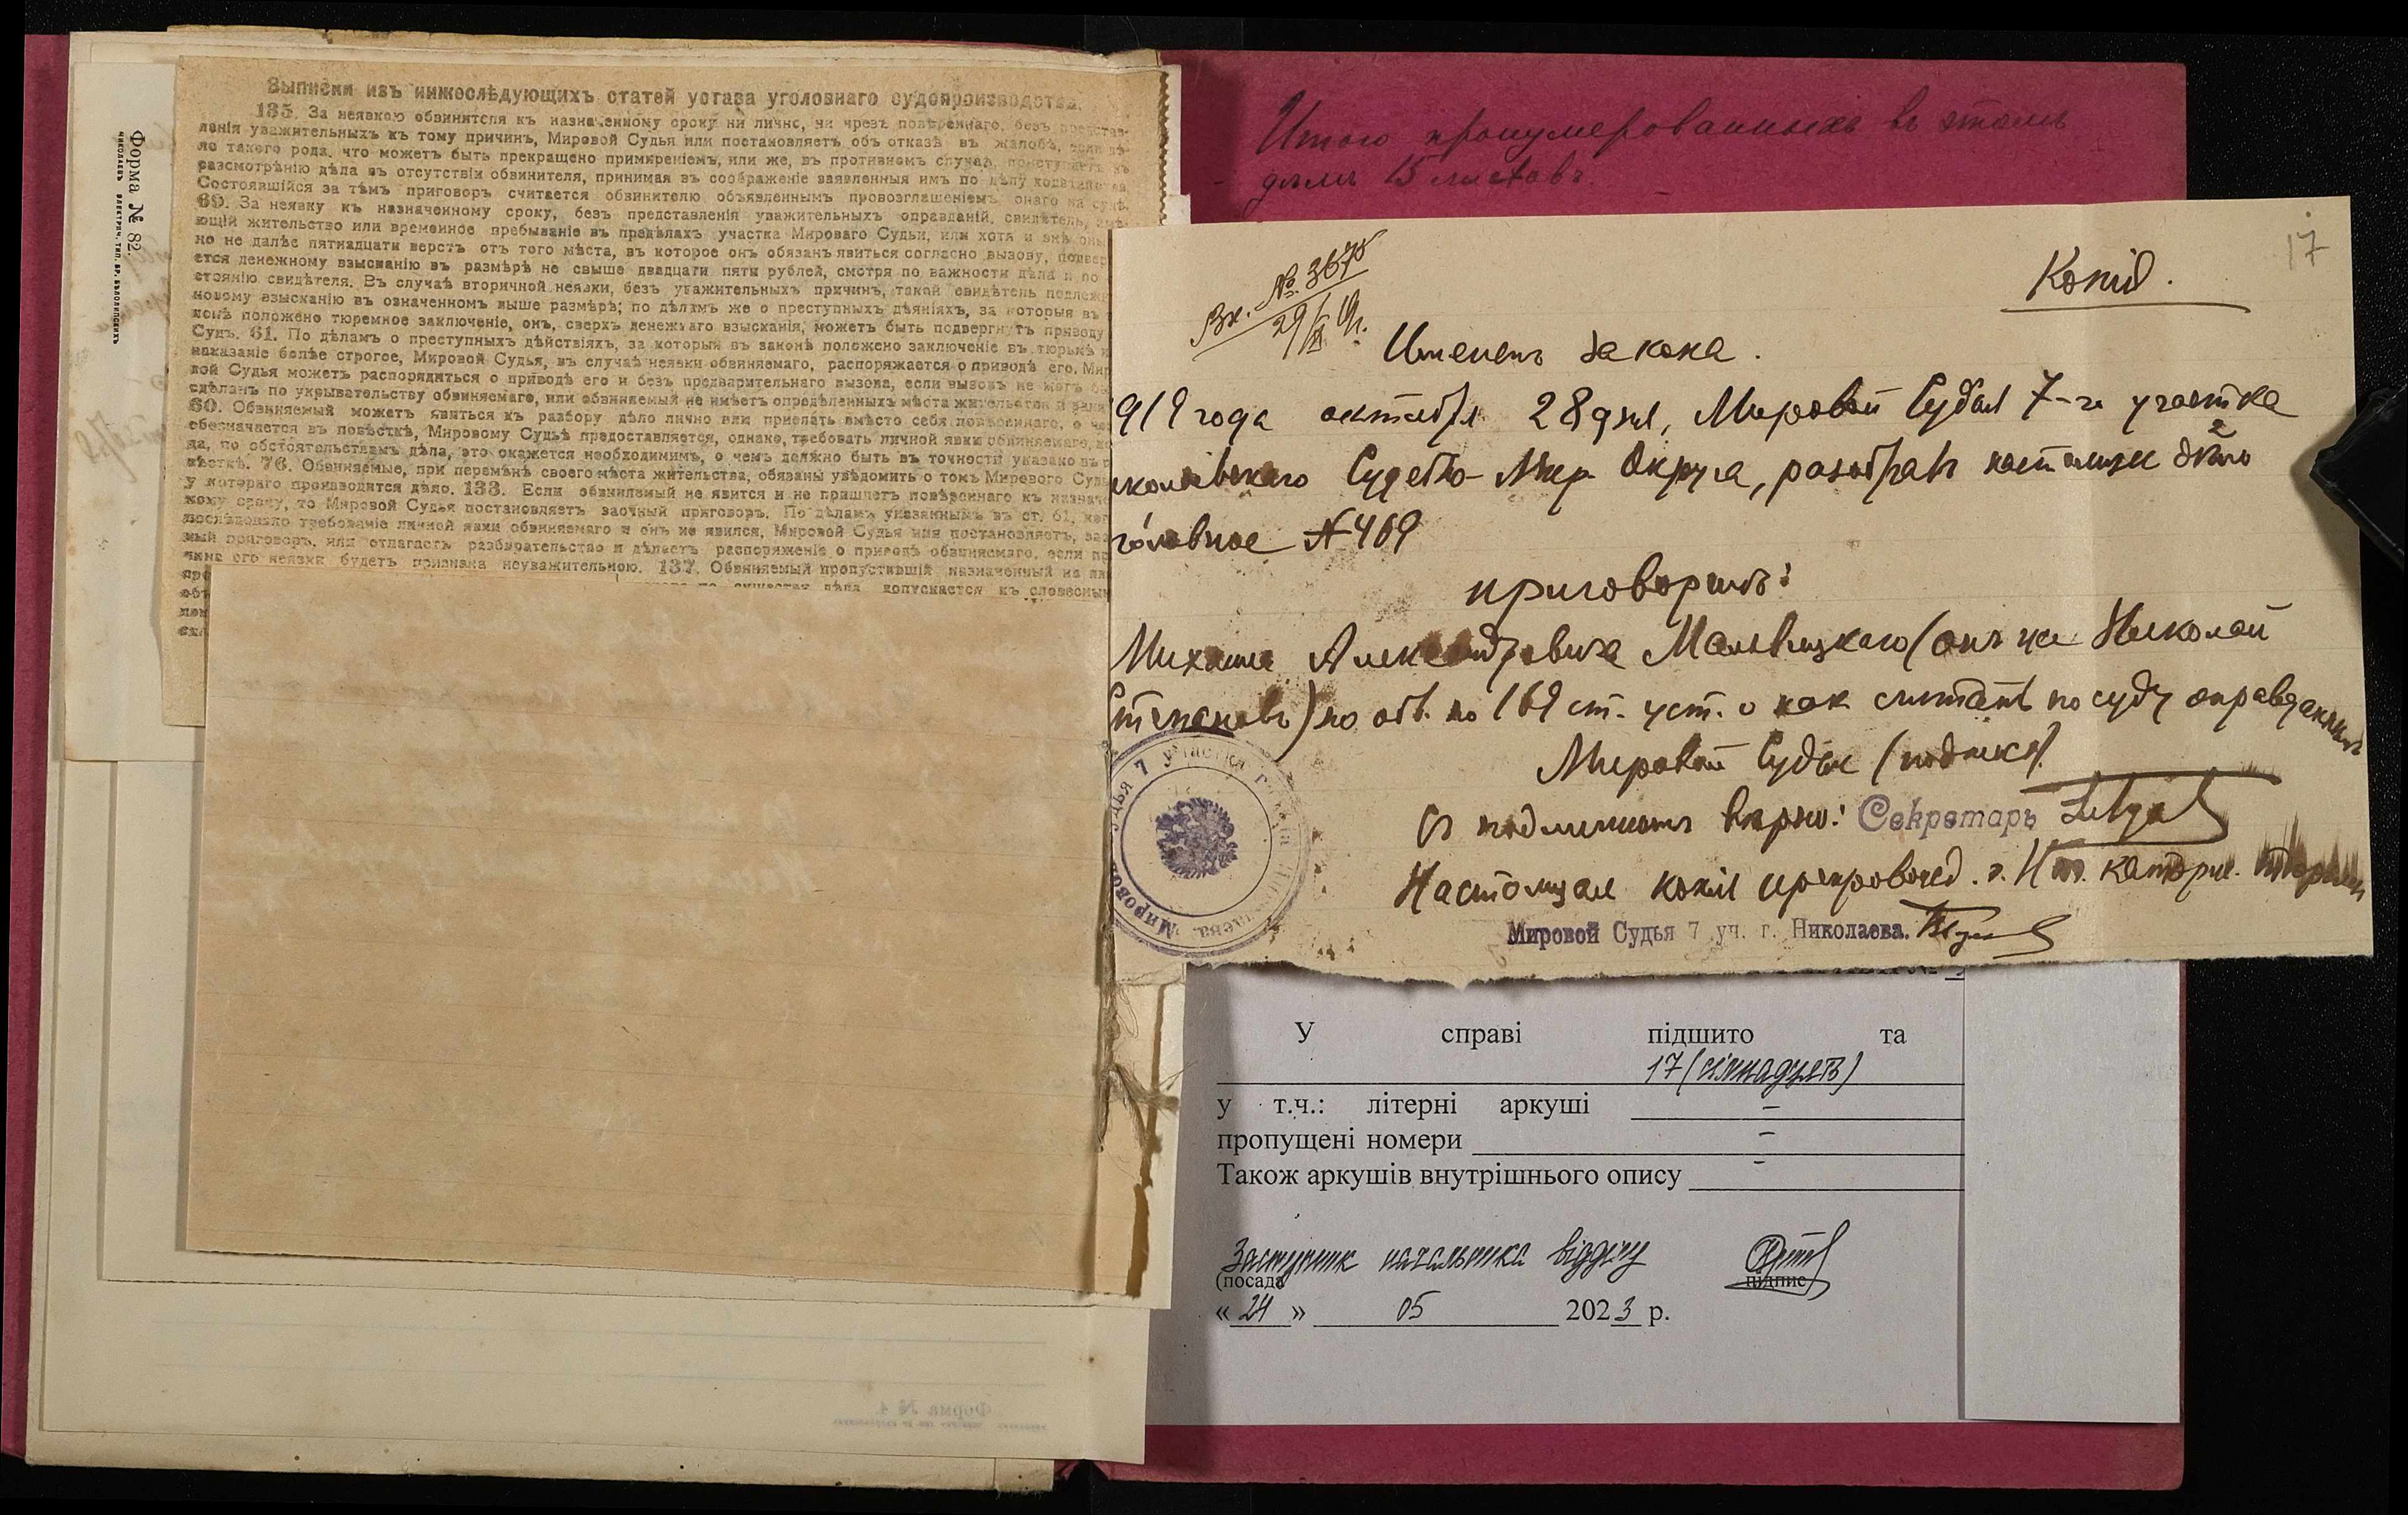 Форма № 82.
Выписки изъ нижеслѣдующихъ статей устава уголовнаго судопроизводства.
135. За неявкою обвинителя къ назначенному сроку ни лично, ни чрезъ повѣреннаго, безъ представ-
ленія уважительныхъ къ тому причинъ, Мировой Судья или постановляетъ объ отказѣ въ жалобѣ, если дѣ-
ло такого рода, что можетъ быть прекращено примиреніемъ, или же, въ противномъ случаѣ, приступаетъ къ
разсмотрѣнію дѣла въ отсутствіи обвинителя, принимая въ соображеніе заявленныя имъ по дѣлу ходатайства.
Состоявшійся за тѣмъ приговоръ считается обвинителю объявленнымъ провозглашеніемъ онаго на судѣ.
69. За неявку къ назначенному сроку, безъ представленія уважительныхъ оправданій, свидѣтель, имѣ-
ющій жительство или временное пребываніе въ предѣлахъ участка Мироваго Судьи, или хотя и внѣ он
но не далѣе пятнадцати верстъ отъ того мѣста, въ которое онъ обязанъ явиться согласно вызову, подвер
ется денежному взысканію въ размѣрѣ не свыше двадцати пяти рублей, смотря по важности дѣла и по
стоянію свидѣтеля. Въ случаѣ вторичной неявки, безъ уважительныхъ причинъ, такой свидѣтель подлежи
новому взысканію въ означенномъ выше размѣрѣ; по дѣламъ же о преступныхъ дѣяніяхъ, за которыя въ
конѣ положено тюремное заключеніе, онъ, сверхъ денежнаго взысканія, можетъ быть подвергнутъ приводу
Судъ. 61. По дѣламъ о преступныхъ дѣйствіяхъ, за который въ законѣ положено заключеніе въ тюрьмѣ и
наказаніе болѣе строгое, Мировой Судья, въ случаѣ неявки обвиняемаго, распоряжается о приводѣ его. Мир
вой Судья можетъ распорядиться о приводѣ его и безъ предварительнаго вызова, если вызовъ не могъ бы
сдѣланъ по укрывательству обвиняемаго, или обвиняемый не имѣетъ опредѣленныхъ мѣста жительства и заня
60. Обвиняемый можетъ явиться къ разбору дѣло лично или прислать вмѣсто себя повѣреннаго, о че
обозначается въ повѣсткѣ, Мировому Судьѣ предоставляется, однако, требовать личной явки обвиняемаго, ко
да, по обстоятельствамъ дѣла, это окажется необходимымъ, о чемъ должно быть въ точности указано въ п
вѣсткѣ. 76. Обвиняемые, при перемѣнѣ своего мѣста жительства, обязаны увѣдомить о томъ Мирового Судь
у котораго производится дѣло. 133. Если обвиняемый не явится и не пришлетъ повѣреннаго къ назначе
ному сроку, то Мировой Судья постановляетъ заочный приговоръ. По дѣламъ указаннымъ въ ст. 61, ког
послѣдовало требованіе личной явки обвиняемаго и онъ не явился, Мировой Судья или постановляетъ, зао
ный приговоръ, или отлагаетъ разбирательство и дѣлаетъ распоряженіе о приводѣ обвиняемаго, если пр
чина его неявки будетъ признана неуважительною. 137. Обвиняемый пропустившій назначенный на
существа дѣла допускается къ словесным
Итого пронумерованныхъ въ этомъ
дѣлѣ 15 листовъ
17
Вх. № 3675
29/X 19г.
Копія.
Именемъ Закона.
919 года октября 28 дня, Мировой Судья 7-го участка
иколаевского Судебно-Мир. Округа, разобравъ настоящее дѣло
головное № 469
приговорилъ:
Михаила Александровича Малевицкаго (онъ же Николай
Степановъ) по обв. по 169 ст. уст. о нак считать по суду оправданнымъ
Мировой Судья (подпись)
Съ подлиннымъ вѣрно: Секретарь
Настоящая копія препровожд. г. Н
Мировой Судья 7 уч. г. Николаева.
Мировой Судья 7 участка г. Николаева
У справі підшито та
17 (сімнадцять)
у т.ч.: літерні аркуші –
пропущені номери –
Також аркушів внутрішнього опису –
Заступник начальника відділу
(посада
підпис
« 24 » 05 2023 р.
Форма № 4.